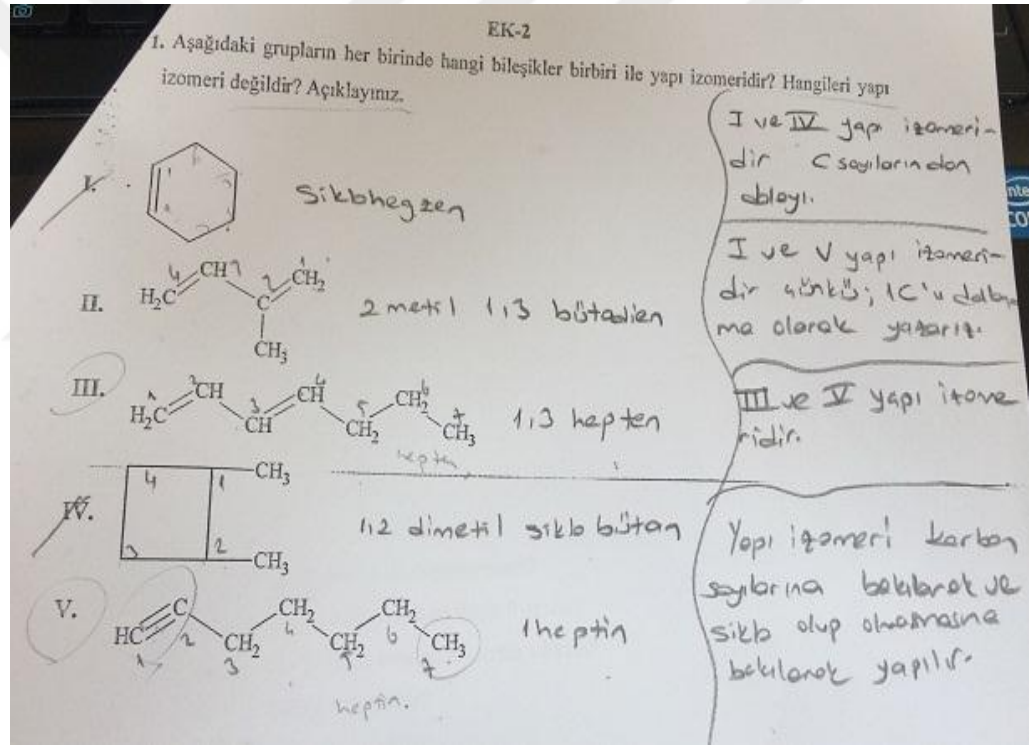 EK-2
1. Aşağıdaki grupların her birinde hangi bileşikler birbiri ile yapı izomeridir? Hangileri yapı
izomeri değildir? Açıklayınız.
I.
Siklohegzen
II.
H₂C CH CH₂
CH₃
4 3 2 1
2 metil 1,3 bütadien
III.
H₂C CH CH CH CH₂ CH₂ CH₃
1 2 3 4 5 6 7
1,3 hepten
IV.
CH₃
CH₃
4 1
3 2
1,2 dimetil siklo bütan
V.
HC C CH₂ CH₂ CH₂ CH₂ CH₃
1 2 3 4 5 6 7
1heptin
heptin.
I ve IV yapı izomeri-
dir C sayılarından
dolayı.
I ve V yapı izomeri-
dir çünkü; 1C'u dallan
ma olarak yazarız.
III ve V yapı izome
ridir.
Yapı izomeri karbon
sayılarına bakılarak ve
siklo olup olmamasına
bakılarak yapılır.